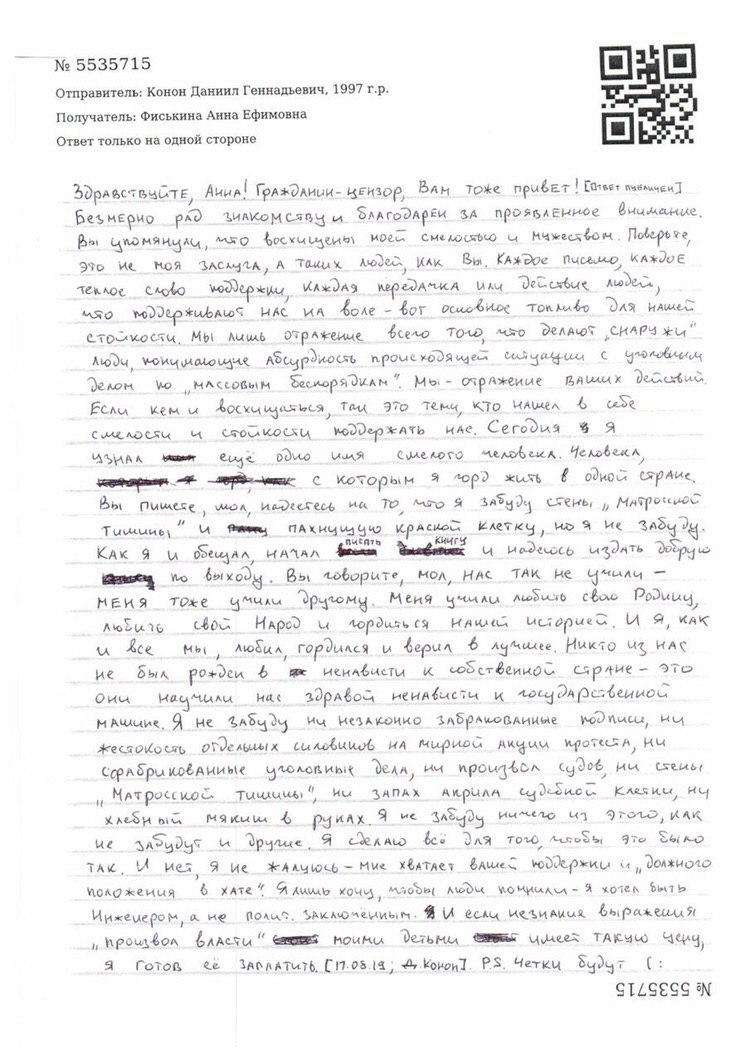 № 5535715
Отправитель: Конон Даниил Геннадьевич, 1997 г.р.
Получатель: Фиськина Анна Ефимовна
Ответ только на одной стороне
Здравствуйте, Анна! Гражданин-цензор, Вам тоже привет! [Ответ публичен]
Безмерно рад знакомству и благодарен за проявленное внимание.
Вы упомянули, что восхищены моей смелостью и мужеством. Поверьте,
это не моя заслуга, а таких людей, как Вы. Каждое письмо, каждое
теплое слово поддержки, каждая передачка или действие людей,
что поддерживают нас на воле - вот основное топливо для нашей
стойкости. Мы лишь отражение всего того, что делают „снаружи"
люди, понимающие абсурдность происходящей ситуации с уголовным
делом по „массовым беспорядкам". Мы - отражение ваших действий.
Если кем и восхищаться, так это теми, кто нашел в себе
смелости и стойкости поддержать нас. Сегодня я
узнал ещё одно имя смелого человека. Человека,
с которым я горд жить в одной стране.
Вы пишете, мол, надеетесь на то, что я забуду стены „Матросской
тишины" и пахнущую краской клетку, но я не забуду.
Как я и обещал, начал писать книгу и надеюсь издать добрую
по выходу. Вы говорите, мол, нас так не учили -
меня тоже учили другому. Меня учили любить свою Родину,
любить свой Народ и гордиться нашей историей. И я, как
и все мы, любил, гордился и верил в лучшее. Никто из нас
не был рожден в ненависти к собственной стране - это
они научили нас здравой ненависти к государственной
машине. Я не забуду ни незаконно забракованные подписи, ни
жестокость отдельных силовиков на мирной акции протеста, ни
сфабрикованные уголовные дела, ни произвол судов, ни стены
„Матросской тишины", ни запах акрила судебной клетки, ни
хлебный мякиш в руках. Я не забуду ничего из этого, как
не забудут и другие. Я сделаю всё для того, чтобы это было
так. И нет, я не жалуюсь - мне хватает вашей поддержки и „должного
положения в хате". Я лишь хочу, чтобы люди помнили - я хотел быть
Инженером, а не полит. заключённым. И если незнание выражения
„произвол власти" моими детьми имеет такую цену,
я готов её заплатить. [17.08.19; Д.Конон]. P.S. Четки будут (:
№ 5535715